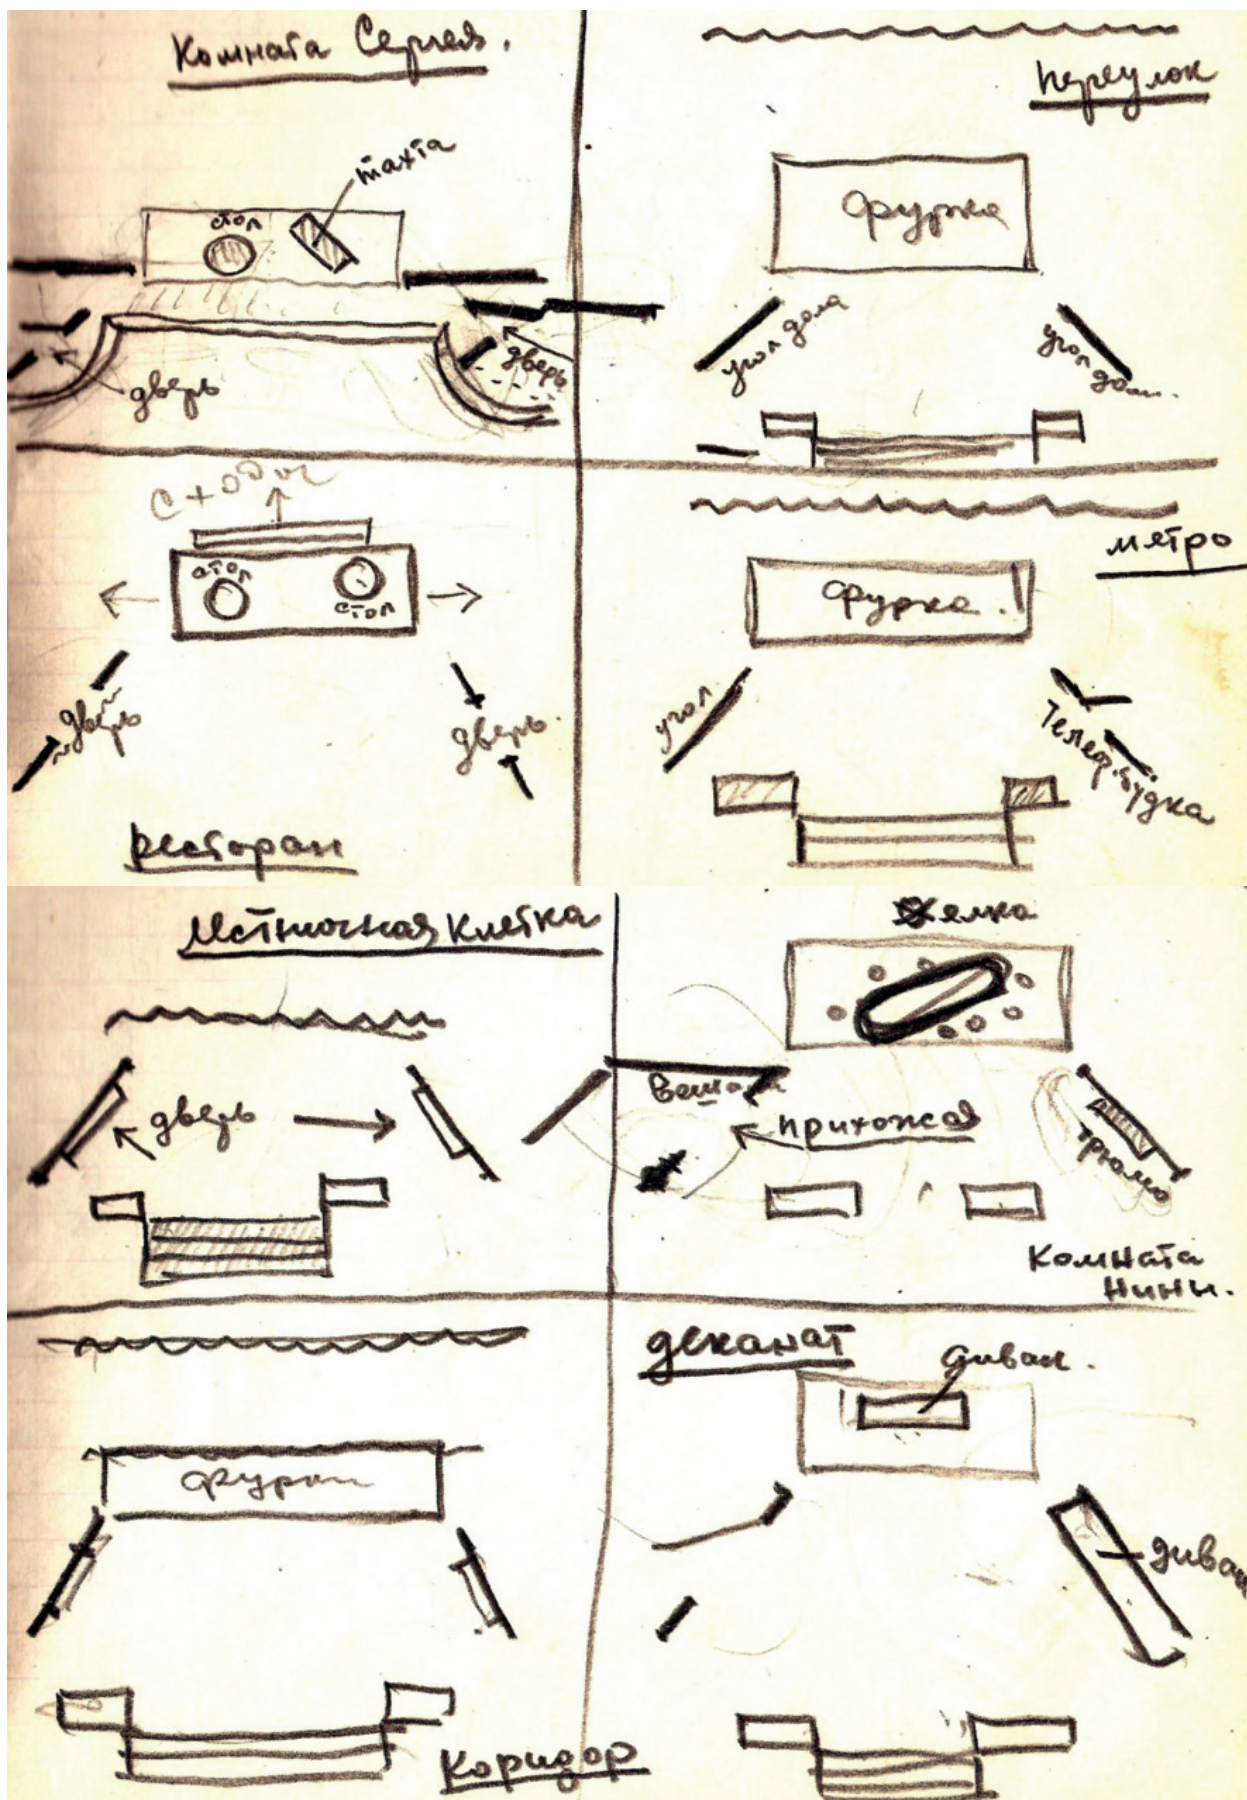 Комната Сергея.
тахта
стол
дверь
дверь
Переулок
фурка
угол дома
угол дом.
стол
стол
дверь
дверь
ресторан
метро
фурка.
угол
Телеф. будка
Лестничная клетка
дверь
елка
вешалка
прихожая
трюмо
Комната
Нины.
фурка
Коридор
деканат
диван.
диван